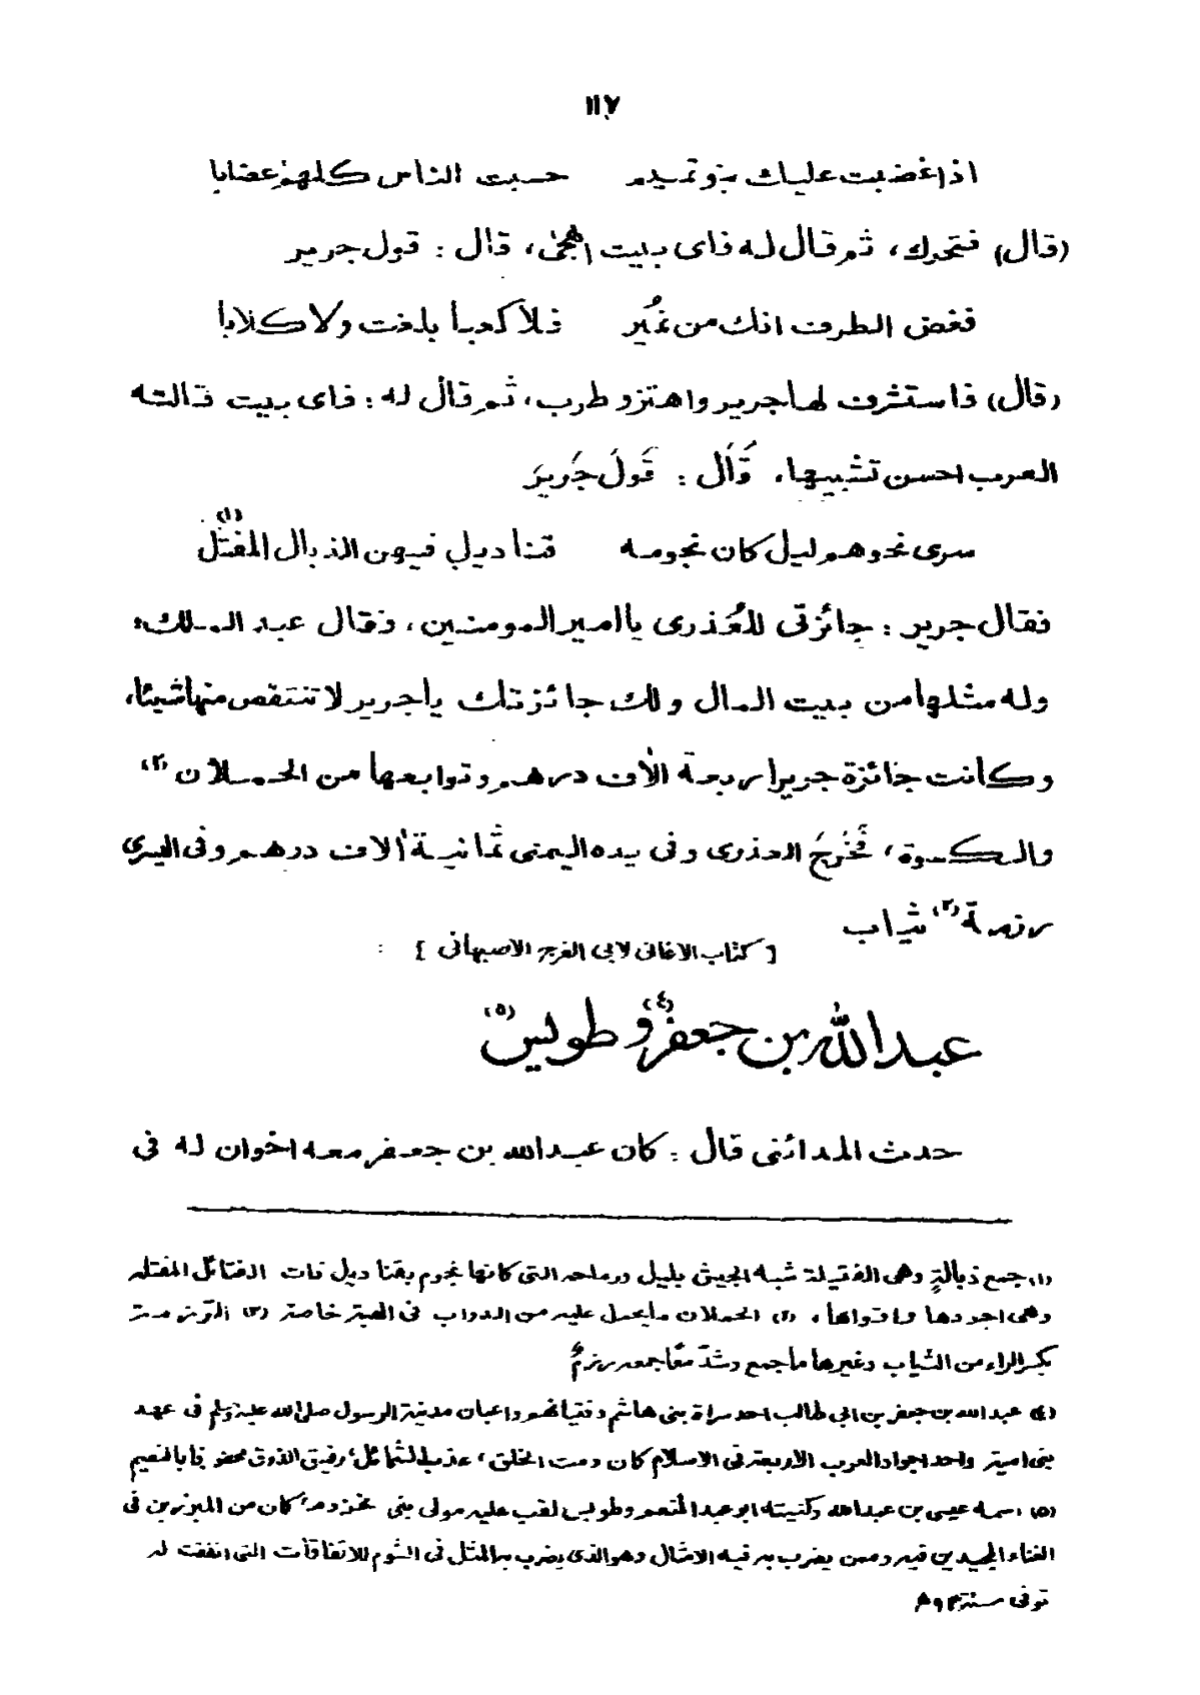 ١١٧
اذا غضبت عليك بنو تميم حسبت الناس كلهم غضابا
(قال) فتحرك، ثم قال له فاى بيت اهجىٰ، قال : قول جرير
فغض الطرف انك من نُمير فلا كعبا بلغت ولا كلابا
(قال) فاستشرف لها جرير واهتز و طرب، ثم قال له : فاى بيت قالته
العرب احسن تشبيها، قَالَ : قَولَ جَرِيرَ
سرى نحوهم ليل كان نجومه قناديل فيهن الذبال المفتّل (١)
فقال جرير : جائزتى للعُذرى يا امير المومنين، فقال عبد الملك:
وله مثلها من بيت المال ولك جائزتك يا جرير لا تنتقص منها شيئا،
وكانت جائزة جرير اربعة الٰاف درهم و توابعها من الحملان (٢)
والكسوة، فَخَرَجَ العذرى و فى يده اليمنى ثمانية الٰاف درهم و فى اليسرى
رزمة (٣) ثياب
[كتاب الاغانى لابى الفرج الاصبهانى] :
عبد الله بن جعفر (٤) و طويس (٥)
حدث المدائنى قال : كان عبد الله بن جعفر معه اخوان له فى
(١) جمع ذبالةٍ وهى الفتيلة شبه الجيش بليل ورماحه التى كانها نجوم بقناديل ذات الفتائل المفتله
وهى اجودها واقواها، (٢) الحملان ما يحمل عليه من الدواب فى الهبة خاصة (٣) الرّزمة
بكسر الراء من الثياب وغيرها ما جمع وشدّ معًا جمعه رزمٌ
(٤) عبد الله بن جعفر بن ابى طالب احد سراة بنى هاشم وفتيانهم واعيان مدينة الرسول صلى الله عليه وسلم فى عهد
بنى امية واحد اجواد العرب الاربعة فى الاسلام كان دمث الخلق، عذب الشمائل، رقيق الذوق
(٥) اسمه عيسى بن عبد الله وكنيته ابو عبد المنعم وطويس لقب عليه مولى بنى مخزوم كان من المبرزين فى
الغناء المجيدين فيه وممن يضرب به فيه الامثال وهو الذى يضرب به المثل فى الشوم للاتفاقات التى اتفقت له
توفى سنة ٩٢ ھ